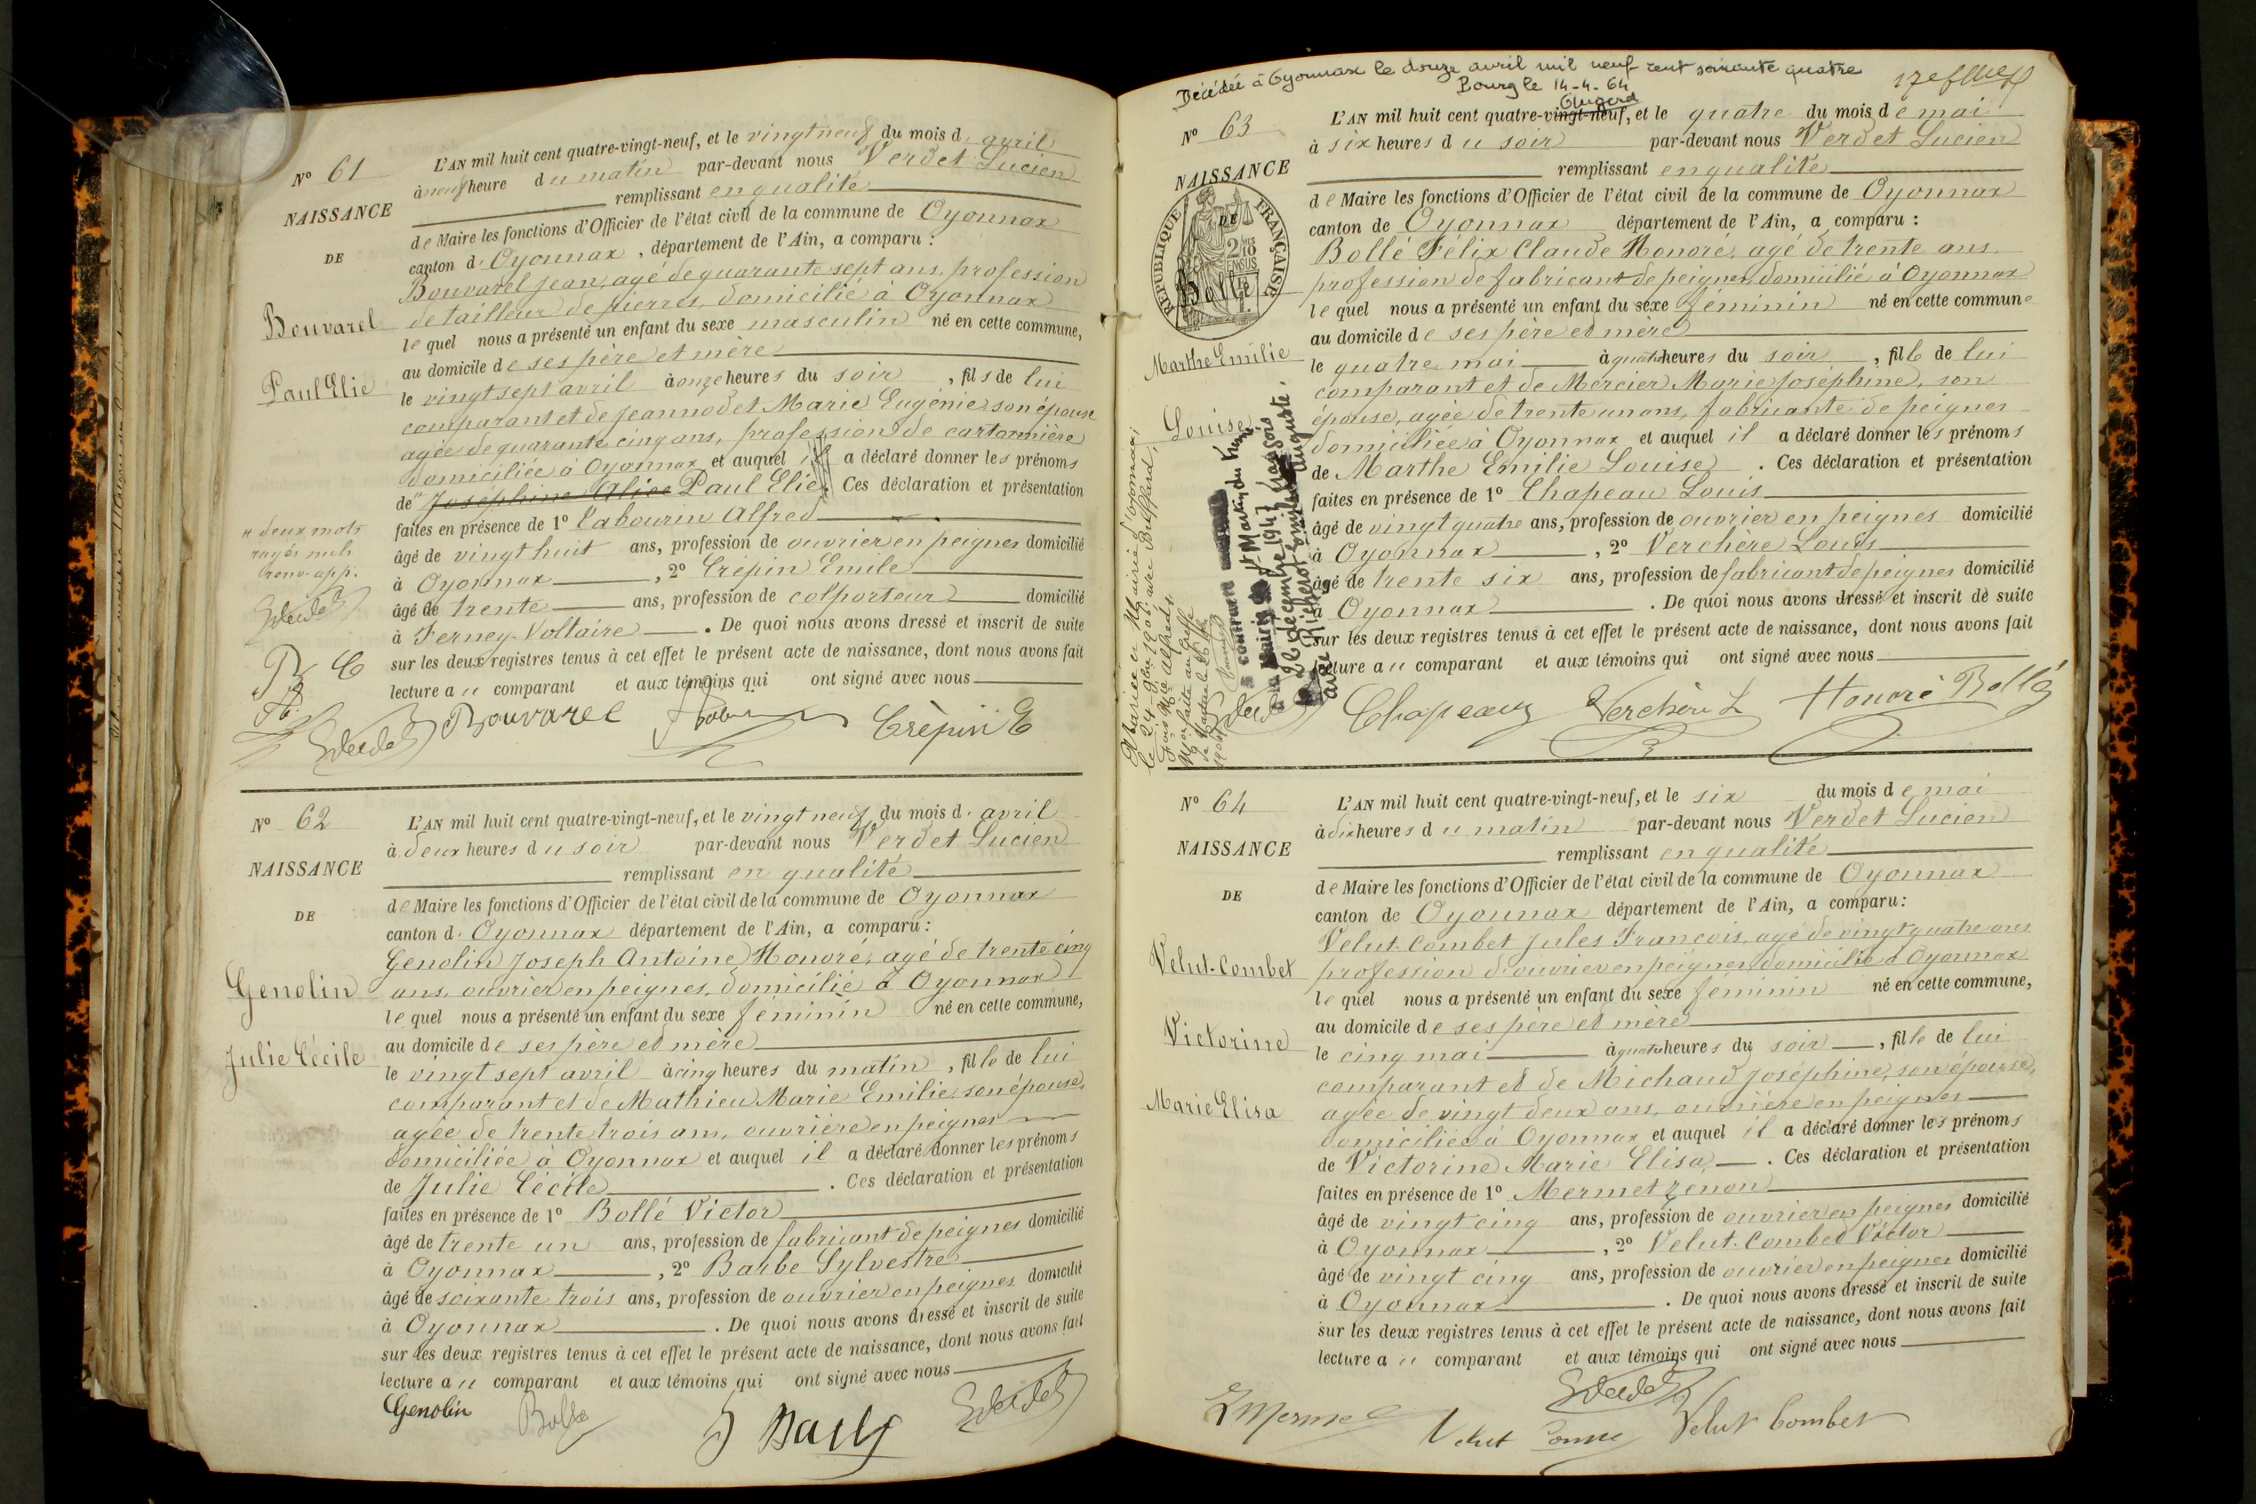 N° 61
NAISSANCE
DE
Bouvarel
Paul Elie
L'AN mil huit cent quatre-vingt-neuf, et le vingt neuf du mois d'avril
à neuf heure du matin par-devant nous Verdet Lucien
remplissant en qualité
de Maire les fonctions d'Officier de l'état civil de la commune de Oyonnax
canton d'Oyonnax, département de l'Ain, a comparu :
Bouvarel Jean, agé de quarante sept ans, profession
de tailleur de pierres, domicilié à Oyonnax
lequel nous a présenté un enfant du sexe masculin né en cette commune,
au domicile de ses père et mère
le vingt sept avril à onze heures du soir, fils de lui
comparant et de Jeannodet Marie Eugénie son épouse
agée de quarante cinq ans, profession de cartonnière
domiciliée à Oyonnax et auquel il a déclaré donner les prénoms
de " Joséphine Alice Paul Elie Ces déclaration et présentation
faites en présence de 1° Cabourin Alfred
âgé de vingt huit ans, profession de ouvrier en peignes domicilié
à Oyonnax, 2° Crépin Emile
âgé de trente ans, profession de colporteur domicilié
à Ferney-Voltaire. De quoi nous avons dressé et inscrit de suite
sur les deux registres tenus à cet effet le présent acte de naissance, dont nous avons fait
lecture au comparant et aux témoins qui ont signé avec nous
" deux mots
rayés nuls
renv. app.
B C
Bouvarel
Crépin E
N° 62
NAISSANCE
DE
Genolin
Julie Cécile
L'AN mil huit cent quatre-vingt-neuf, et le vingt neuf du mois d'avril
à deux heures du soir par-devant nous Verdet Lucien
remplissant en qualité
de Maire les fonctions d'Officier de l'état civil de la commune de Oyonnax
canton d'Oyonnax département de l'Ain, a comparu :
Genolin Joseph Antoine Honoré, agé de trente cinq
ans, ouvrier en peignes, domicilié à Oyonnax
lequel nous a présenté un enfant du sexe féminin né en cette commune,
au domicile de ses père et mère
le vingt sept avril à cinq heures du matin, fille de lui
comparant et de Mathieu Marie Emilie son épouse,
agée de trente trois ans, ouvrière en peignes
domiciliée à Oyonnax et auquel il a déclaré donner les prénoms
de Julie Cécile. Ces déclaration et présentation
faites en présence de 1° Bollé Victor
âgé de trente un ans, profession de fabricant de peignes domicilié
à Oyonnax, 2° Barbe Sylvestre
âgé de soixante trois ans, profession de ouvrier en peignes domicilié
à Oyonnax. De quoi nous avons dressé et inscrit de suite
sur les deux registres tenus à cet effet le présent acte de naissance, dont nous avons fait
lecture au comparant et aux témoins qui ont signé avec nous
Genolin
Décédée à Oyonnax le douze avril mil neuf cent soixante quatre
Bourg le 14-4-64
N° 63
NAISSANCE
DE
RÉPUBLIQUE FRANÇAISE
Bollé
Marthe Emilie
Louise
L'AN mil huit cent quatre-vingt-neuf, et le quatre du mois de mai
à six heures du soir par-devant nous Verdet Lucien
remplissant en qualité
de Maire les fonctions d'Officier de l'état civil de la commune de Oyonnax
canton de Oyonnax département de l'Ain, a comparu :
Bollé Félix Claude Honoré, agé de trente ans
profession de fabricant de peignes, domicilié à Oyonnax
lequel nous a présenté un enfant du sexe féminin né en cette commune
au domicile de ses père et mère
le quatre mai à quatre heures du soir, fille de lui
comparant et de Mercier Marie Joséphine, son
épouse, agée de trente un ans, fabricante de peignes
domiciliée à Oyonnax et auquel il a déclaré donner les prénoms
de Marthe Emilie Louise. Ces déclaration et présentation
faites en présence de 1° Chapeau Louis
âgé de vingt quatre ans, profession de ouvrier en peignes domicilié
à Oyonnax, 2° Verchère Louis
âgé de trente six ans, profession de fabricant de peignes domicilié
à Oyonnax. De quoi nous avons dressé et inscrit de suite
sur les deux registres tenus à cet effet le présent acte de naissance, dont nous avons fait
lecture au comparant et aux témoins qui ont signé avec nous
Chapeaux Verchère L Honoré Bollé
N° 64
NAISSANCE
DE
Velut-Combet
Victorine
Marie Elisa
L'AN mil huit cent quatre-vingt-neuf, et le six du mois de mai
à dix heures du matin par-devant nous Verdet Lucien
remplissant en qualité
de Maire les fonctions d'Officier de l'état civil de la commune de Oyonnax
canton de Oyonnax département de l'Ain, a comparu :
Velut-Combet Jules François, agé de vingt quatre ans
profession d'ouvrier en peignes domicilié à Oyonnax
lequel nous a présenté un enfant du sexe féminin né en cette commune,
au domicile de ses père et mère
le cinq mai à quatre heures du soir, fille de lui
comparant et de Michaud Joséphine, son épouse,
agée de vingt deux ans, ouvrière en peignes
domiciliée à Oyonnax et auquel il a déclaré donner les prénoms
de Victorine Marie Elisa. Ces déclaration et présentation
faites en présence de 1° Mermet Zenon
âgé de vingt cinq ans, profession de ouvrier en peignes domicilié
à Oyonnax, 2° Velut-Combet Victor
âgé de vingt cinq ans, profession de ouvrier en peignes domicilié
à Oyonnax. De quoi nous avons dressé et inscrit de suite
sur les deux registres tenus à cet effet le présent acte de naissance, dont nous avons fait
lecture au comparant et aux témoins qui ont signé avec nous
Velut Combet